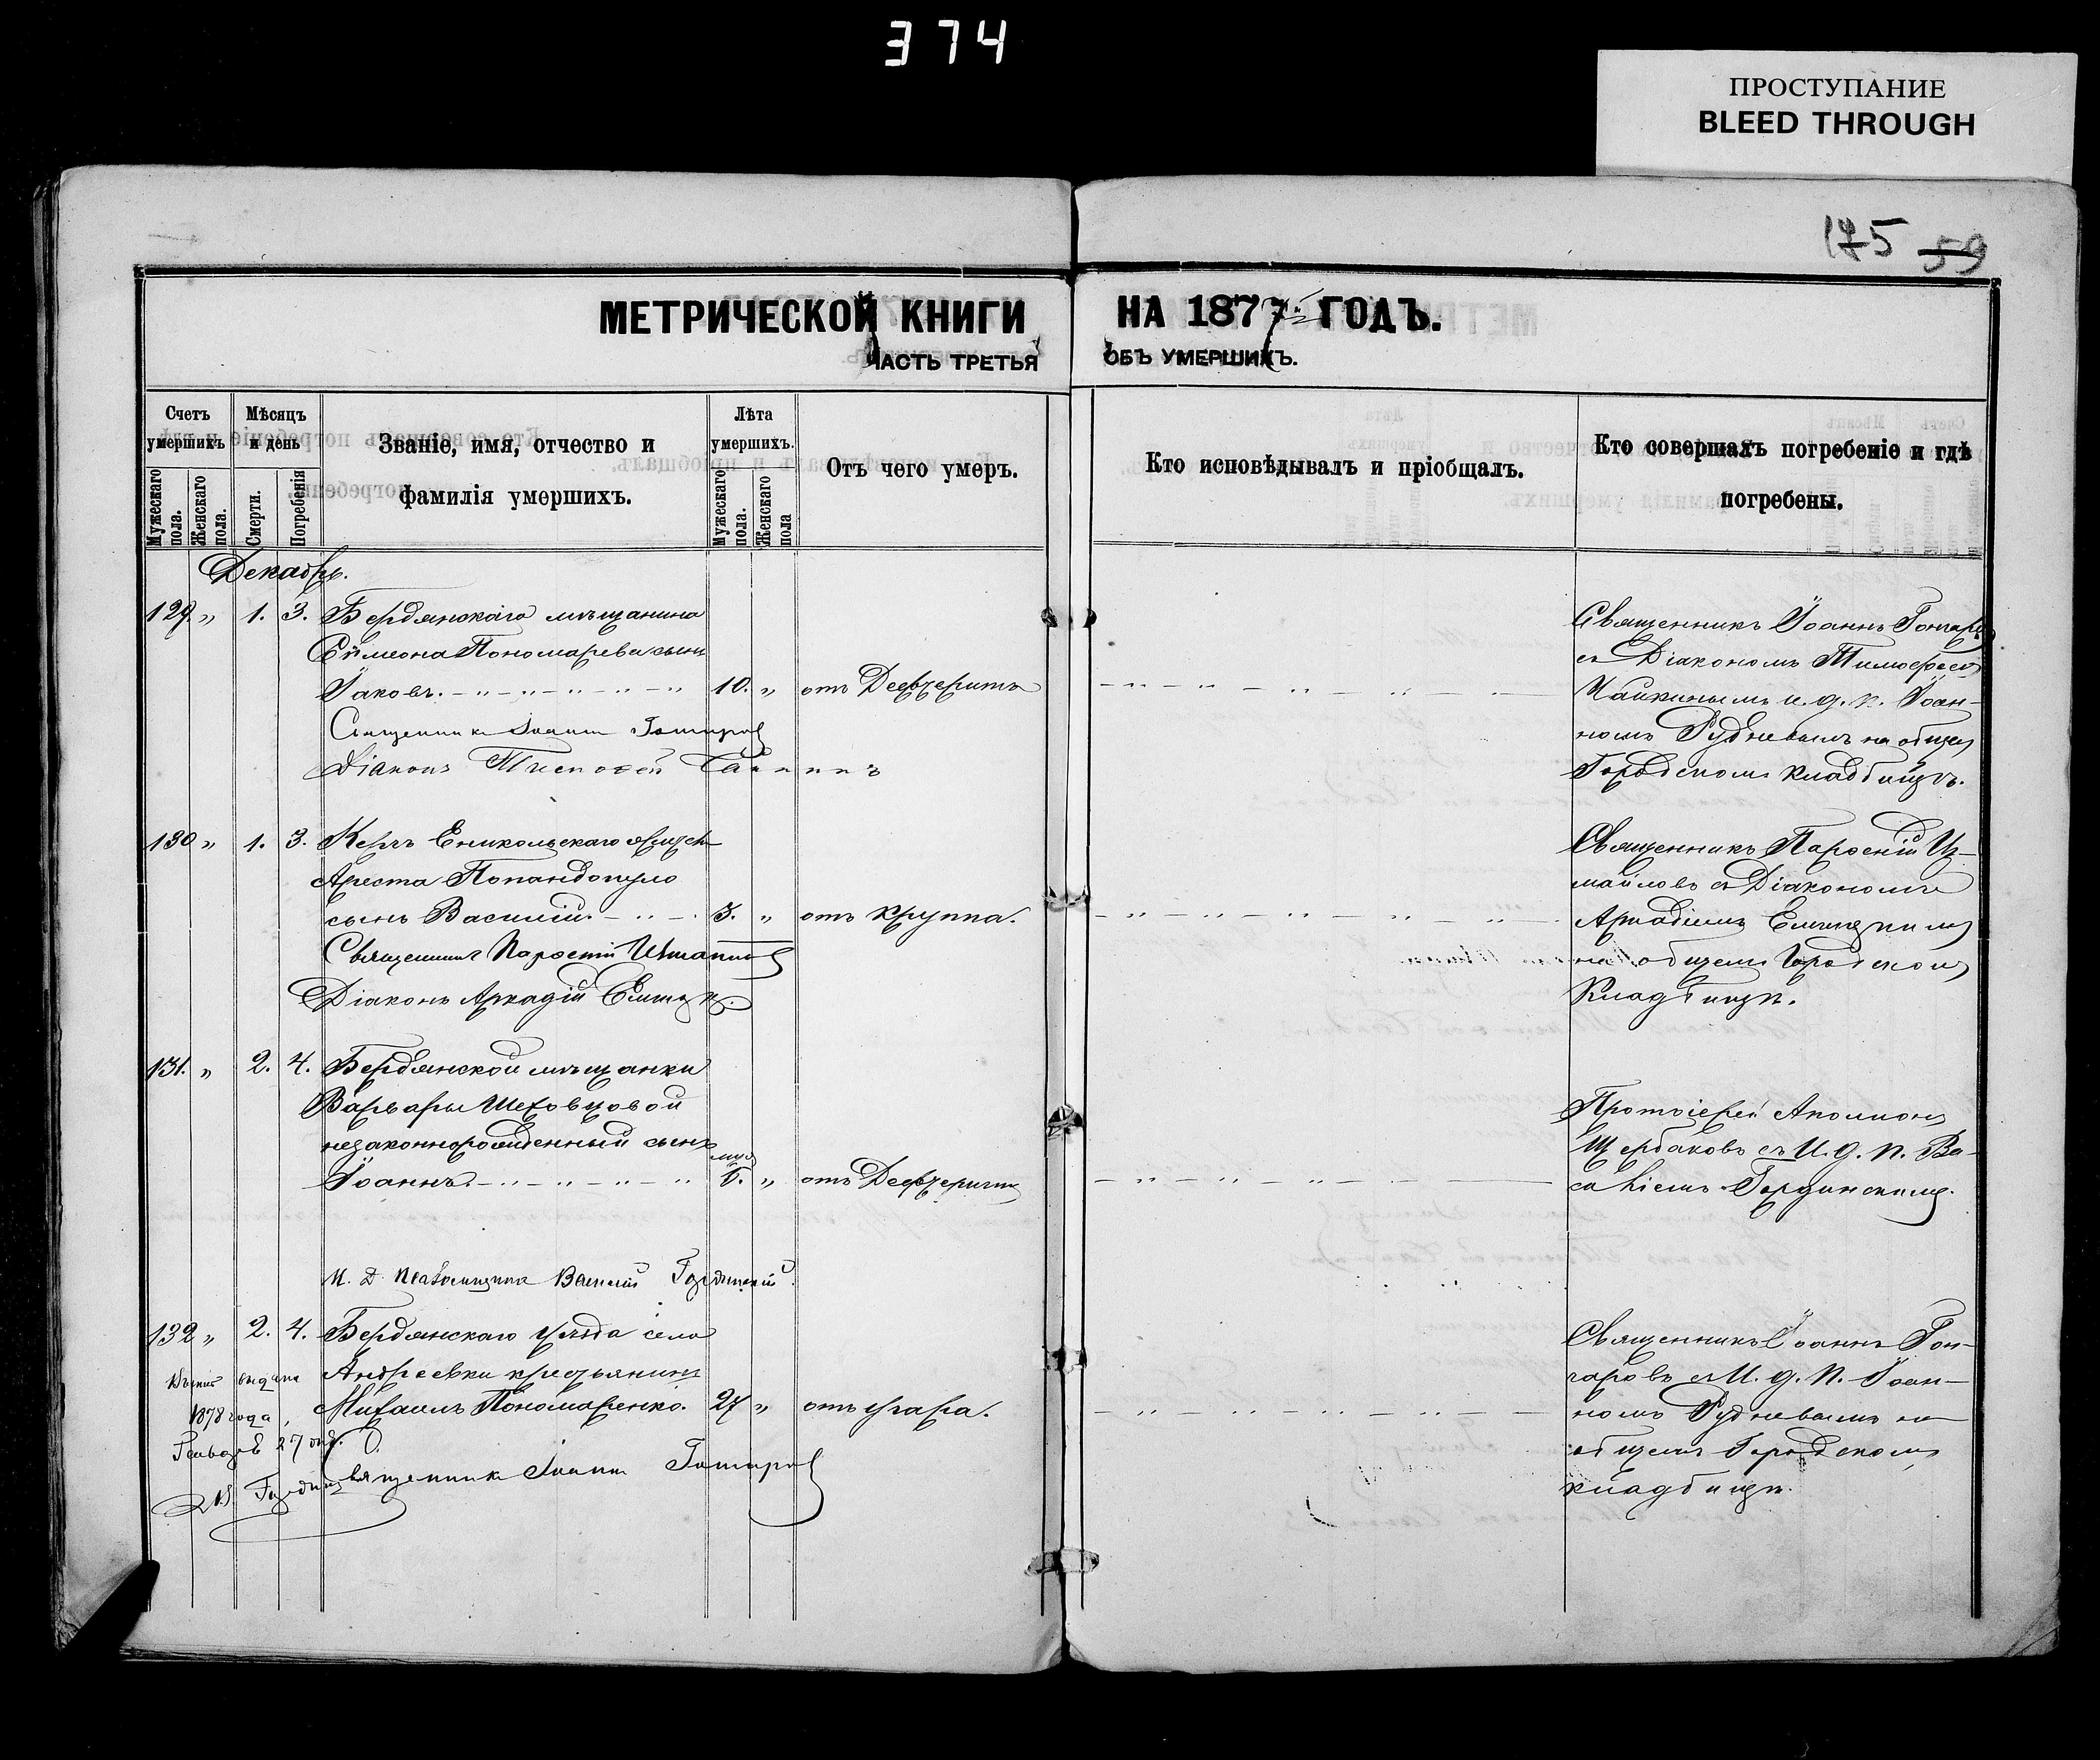 374
ПРОСТУПАНИЕ
BLEED THROUGH
175 59
МЕТРИЧЕСКОЙ КНИГИ НА 1877 ГОДЪ.
ЧАСТЬ ТРЕТЬЯ ОБЪ УМЕРШИХЪ.
Счетъ умершихъ
Мужескаго пола.
Женскаго пола.
Мѣсяцъ и день
Смерти.
Погребенія
Званіе, имя, отчество и
фамилія умершихъ.
Лѣта умершихъ.
Мужескаго пола.
Женскаго пола
Отъ чего умеръ.
Кто исповѣдывалъ и пріобщалъ.
Кто совершалъ погребеніе и гдѣ
погребены.
Декабрь.
129. " 1. 3. Бердянскаго мѣщанина
Симеона Пономарева сынъ
Іаковъ. 10. " отъ Дефтерита
Священникъ Іоаннъ Гончаровъ
Діаконъ Тимофей Чайкинъ
Священникъ Іоаннъ Гончаровъ
съ Діакономъ Тимофеемъ
Чайкинымъ и. д. п. Іоан-
номъ Рудневымъ на общемъ
Городскомъ кладбищѣ.
130 " 1. 3. Керчь Еникольскаго
Ареста Попандопуло
сынъ Василій. 3. " отъ круппа.
Священникъ Парфеній Измаиловъ
Діаконъ Аркадій
Священникъ Парфеній Из-
маиловъ съ Діакономъ
Аркадіемъ
на общемъ Городскомъ
Кладбищѣ.
131. " 2. 4. Бердянской мѣщанки
Варвары Шеховцовой
незаконнорожденный сынъ
Іоаннъ. " отъ Дефтерита
И. Д. Псаломщика Василій Гординскій
Протоіерей Аполлонъ
Щербаковъ съ И. д. п. Ва-
силіемъ Гординскимъ.
132 " 2. 4. Бердянскаго уѣзда села
Андреевки крестьянинъ
Михаилъ Пономаренко. 27 " отъ угара.
Священникъ Іоаннъ Гончаровъ
выдана
1878 года,
27
Священникъ Іоаннъ Гон-
чаровъ съ И. д. п. Іоан-
номъ Рудневымъ на
общемъ Городскомъ
кладбищѣ.